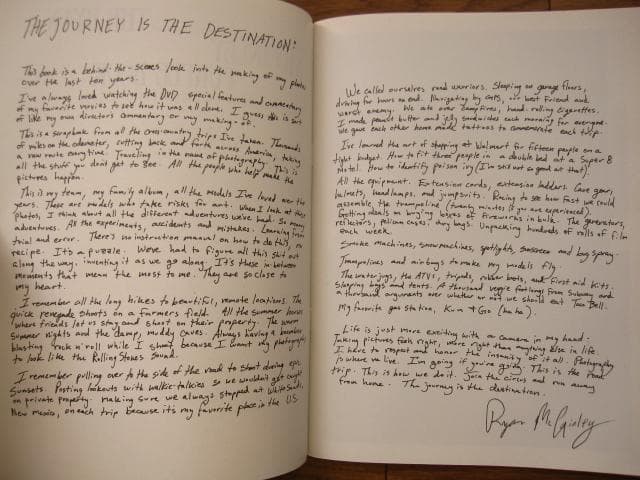 THE JOURNEY IS THE DESTINATION:
This book is a behind-the-scenes look into the making of my photos
over the last ten years.
I've always loved watching the DVD special features and commentary
of my favorite movies to see how it was all done. I guess this is sort
of like my own directors commentary or my making-of.
This is a scrapbook from all the cross-country trips I've taken. Thousands
of miles on the odometer, cutting back and forth across America, taking
a new route everytime. Traveling in the name of photography. This is
all the stuff you don't get to see. All the people who help make the
pictures happen.
This is my team, my family album, all the models I've loved over the
years. These are models who take risks for art. When I look at these
photos, I think about all the different adventures we've had. So many
adventures. All the experiments, accidents and mistakes. Learning from
trial and error. There's no instruction manual on how to do this, no
recipe. It's a puzzle. We've had to figure all this shit out
along the way, inventing it as we go along. It's these in-between
moments that mean the most to me. They are so close to
my heart.
I remember all the long hikes to beautiful, remote locations. The
quick renegade shoots on a farmers field. All the summer houses
where friends let us stay and shoot on their property. The warm
summer nights and the damp, muddy caves. Always having a boombox
blasting rock n' roll while I shoot because I want my photographs
to look like the Rolling Stones sound.
I remember pulling over to the side of the road to shoot during epic
sunsets. Posting lookouts with walkie-talkies so we wouldn't get caught
on private property. Making sure we always stopped at White Sands,
New Mexico, on each trip because it's my favorite place in the U.S.
We called ourselves road warriors. Sleeping on garage floors,
driving for hours on end. Navigating by GPS, our best friend and
worst enemy. We ate over campfires, hand-rolling cigarettes.
I made peanut butter and jelly sandwiches each morning for everyone.
We gave each other home made tattoos to commemorate each trip.
I've learned the art of shopping at Walmart for fifteen people on a
tight budget. How to fit three people in a double bed at a Super 8
Motel. How to identify poison ivy (I'm still not so good at that).
All the equipment. Extension cords, extension ladders. Cave gear,
helmets, headlamps, and jumpsuits. Racing to see how fast we could
assemble the trampoline (twenty minutes if you are experienced).
Getting deals on buying boxes of fireworks in bulk. The generators,
reflectors, pelican cases, dry bags. Unpacking hundreds of rolls of film
each week.
Smoke machines, snowmachines, spotlights, sunscreen and bug spray.
Trampolines and airbags to make my models fly.
The water jugs, the ATVs, tripods, rubber boots, and First Aid Kits.
Sleeping bags and tents. A thousand veggie footlongs from Subway and
a thousand arguments over whether or not we should eat Taco Bell.
My favorite gas station, Kum & Go (ha ha).
Life is just more exciting with a camera in my hand.
Taking pictures feels right, more right than anything else in life.
I have to respect and honor the insanity of it all. Photography
is where we live. I'm going if you're going. This is the road
trip. This is how we do it. Join the circus and run away
from home. The journey is the destination.
Ryan McGinley